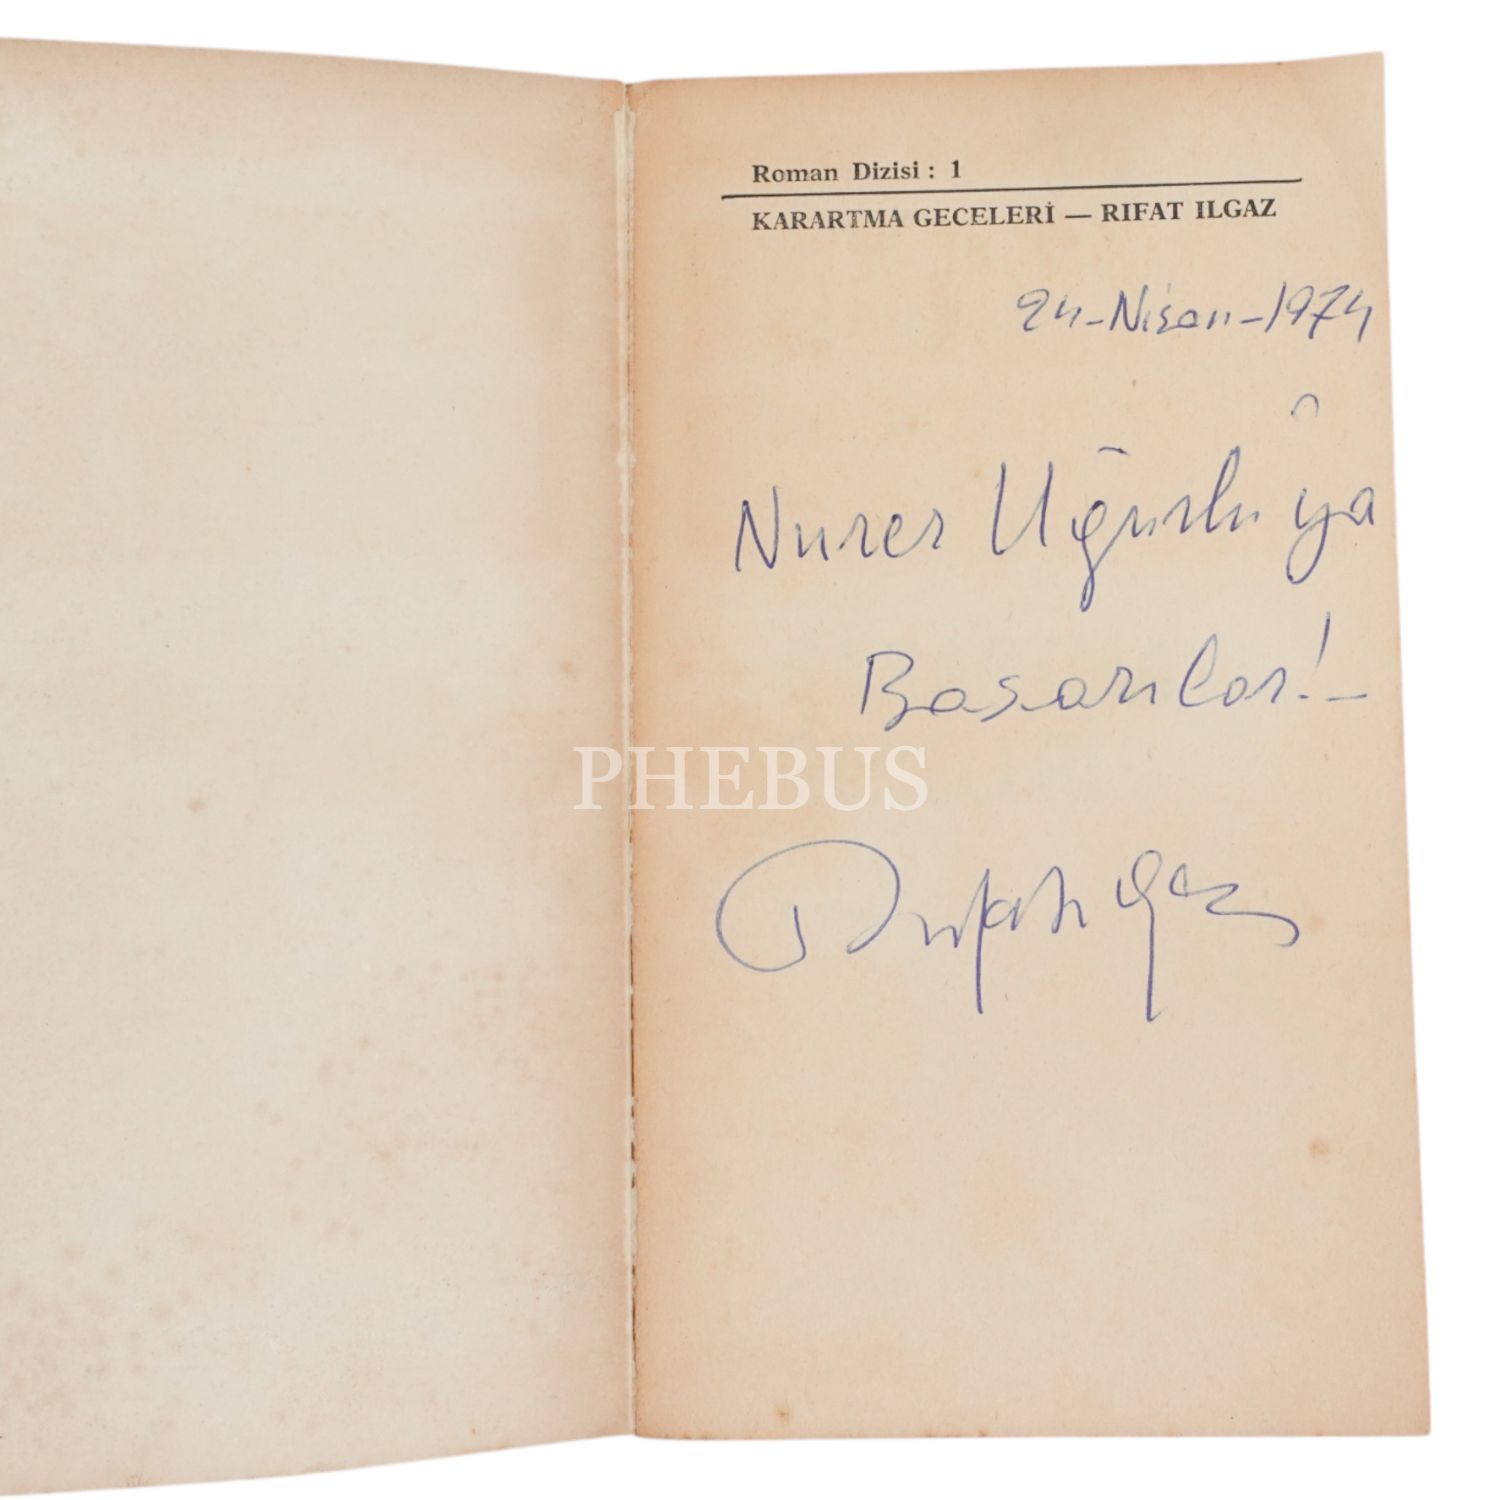 Roman Dizisi : 1
KARARTMA GECELERİ — RIFAT ILGAZ
24-Nisan-1974
Nurer Uğurlu'ya
Başarılar!-
PHEBUS
Rıfat Ilgaz